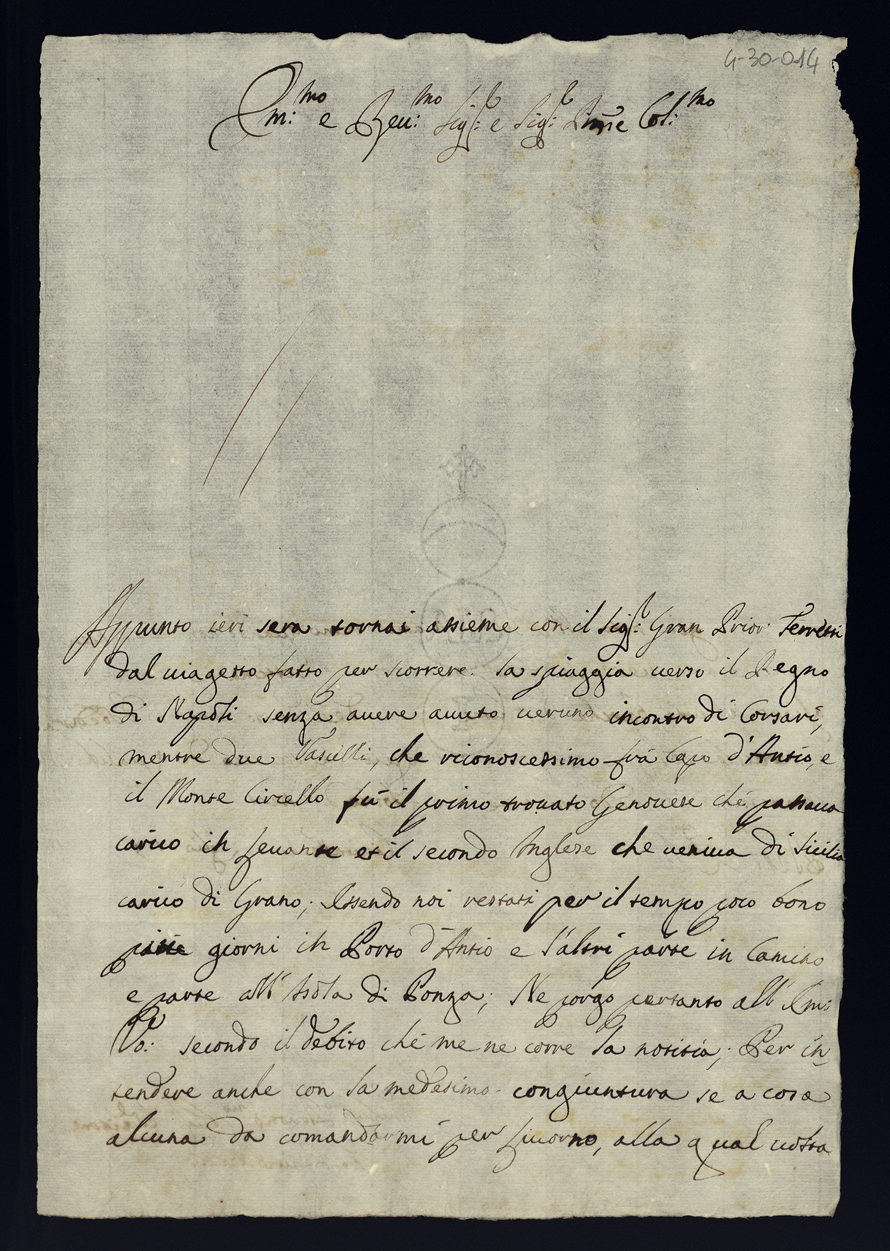 4-30-014
Em:mo e Reu:mo Sig:r e Sig:r Pne Col:mo
Appunto ieri sera tornai assieme con il Sig:r Gran Prior Ferretti
dal uiagetto fatto per scorrere la spiaggia uerso il Regno
di Napoli senza auere auuto ueruno incontro di Corsari,
mentre due Vascelli, che riconoscessimo frà Capo d'Antio, e
il Monte Circello fù il primo trouato Genouese che passaua
carico in leuante et il secondo Inglese che ueniua di Sicilia
carico di Grano; Essendo noi restati per il tempo poco bono
giorni in Porto d'Antio e l'altri parte in Camino
e parte all'Isola di Ponza; Ne porgo pertanto all' Em:
Vo: secondo il debito che me ne corre la notitia; Per in
tendere anche con la medesima congiuntura se a cosa
alcuna da comandarmi per liuorno, alla qual uolta